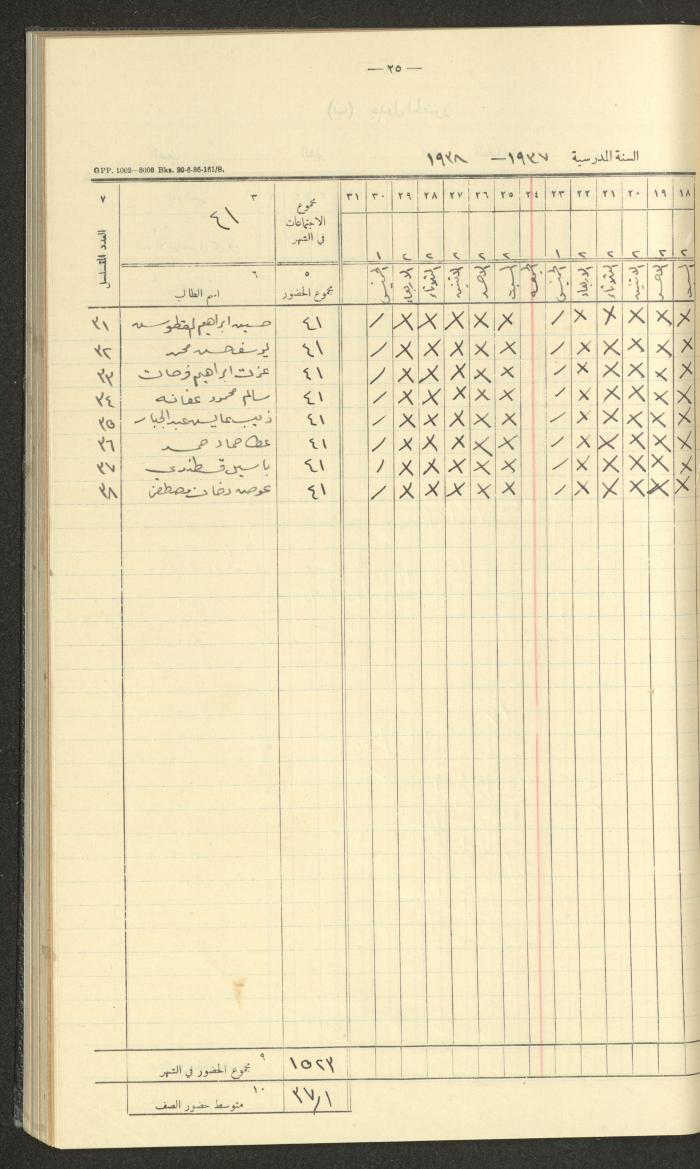 — ٢٥ —
السنة المدرسية ١٩٣٧ — ١٩٣٨
GPP. 1002—8000 Bks. 20-6-36-161/S.
١٨ ١٩ ٢٠ ٢١ ٢٢ ٢٣ ٢٤ ٢٥ ٢٦ ٢٧ ٢٨ ٢٩ ٣٠ ٣١ مجموع الاجتماعات في الشهر ٣ ٤١ ٧ العدد المتسلسل
٢ ٢ ٢ ٢ ٢ ١ ٢ ٢ ٢ ٢ ٢ ١
السبت الاحد الاثنين الثلاثاء الاربعاء الخميس الجمعه السبت الاحد الاثنين الثلاثاء الاربعاء الخميس ٥ مجموع الحضور ٦ اسم الطالب
X X X X X / X X X X X / ٤١ حسين ابراهيم ٣١
X X X X X / X X X X X / ٤١ يوسف حسين محمد ٣٢
X X X X X / X X X X X / ٤١ عزت ابراهيم فرحات ٣٣
X X X X X / X X X X X / ٤١ سالم محمود عفانه ٣٤
X X X X X / X X X X X / ٤١ ذيب عايش عبدالجبار ٣٥
X X X X X / X X X X X / ٤١ عطا حماد حمد ٣٦
X X X X X / X X X X X / ٤١ ياسين قسطندي ٣٧
X X X X X / X X X X X / ٤١ عوض رمضان مصطفى ٣٨
١٥٢٣ ٩ مجموع الحضور في الشهر
٣٧/١ ١٠ متوسط حضور الصف